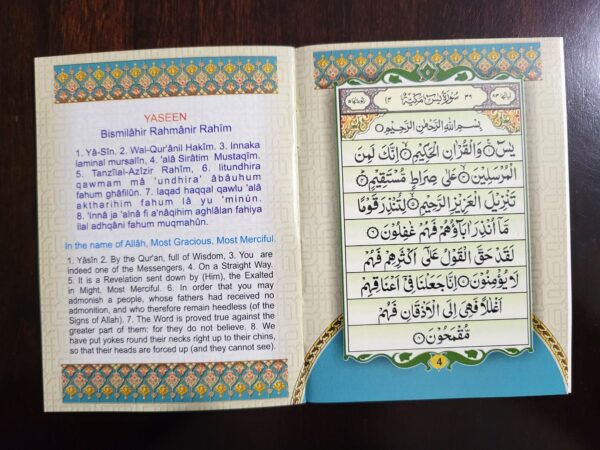 YASEEN
Bismilâhir Rahmânir Rahîm
1. Yâ-Sîn. 2. Wal-Qur'ânil Hakîm. 3. Innaka
laminal mursalîn, 4. 'alâ Sirâtim Mustaqîm.
5. Tanzîlal-Azîzir Rahîm, 6. litundhira
qawmam mâ 'undhira' âbâuhum
fahum ghâfilûn. 7. laqad haqqal qawlu 'alâ
aktharihim fahum lâ yu 'minûn.
8. 'Innâ ja 'alnâ fi a'nâqihim aghlâlan fahiya
ilal adhqâni fahum muqmahûn.
In the name of Allâh, Most Gracious, Most Merciful.
1. Yâsîn 2. By the Qur'an, full of Wisdom, 3. You are
indeed one of the Messengers, 4. On a Straight Way.
5. It is a Revelation sent down by (Him), the Exalted
in Might, Most Merciful. 6. In order that you may
admonish a people, whose fathers had received no
admonition, and who therefore remain heedless (of the
Signs of Allah). 7. The Word is proved true against the
greater part of them: for they do not believe. 8. We
have put yokes round their necks right up to their chins,
so that their heads are forced up (and they cannot see).
سُوْرَةُ يٰسٓ مَكِّيَّةٌ ٣٦
بِسْمِ اللّٰهِ الرَّحْمٰنِ الرَّحِيْمِ
يٰسٓ ۝١ وَالْقُرْاٰنِ الْحَكِيْمِ ۝٢ اِنَّكَ لَمِنَ
الْمُرْسَلِيْنَ ۝٣ عَلٰى صِرَاطٍ مُّسْتَقِيْمٍ ۝٤
تَنْزِيْلَ الْعَزِيْزِ الرَّحِيْمِ ۝٥ لِتُنْذِرَ قَوْمًا
مَّاۤ اُنْذِرَ اٰبَآؤُهُمْ فَهُمْ غٰفِلُوْنَ ۝٦
لَقَدْ حَقَّ الْقَوْلُ عَلٰۤى اَكْثَرِهِمْ فَهُمْ
لَا يُؤْمِنُوْنَ ۝٧ اِنَّا جَعَلْنَا فِيْۤ اَعْنَاقِهِمْ
اَغْلٰلًا فَهِيَ اِلَى الْاَذْقَانِ فَهُمْ
مُّقْمَحُوْنَ ۝٨
4